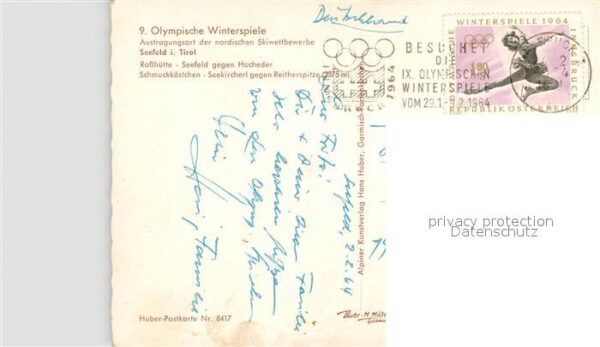 Deutschland
9. Olympische Winterspiele
Austragungsort der nordischen Skiwettbewerbe
Seefeld i. Tirol
Roßhütte - Seefeld gegen Hocheder
Schmuckkästchen - Seekircherl gegen Reitherspitze (2375 m)
1964
BESUCHET
DIE
IX. OLYMPISCHEN
WINTERSPIELE
VOM 29.1.-9.2.1964
OLYMPISCHE WINTERSPIELE 1964 INNSBRUCK
1.80
REPUBLIK ÖSTERREICH
Alpiner Kunstverlag Hans Huber, Garmisch-Partenkirchen
Seefeld, 2.2.64
Dir & Deiner lieben Familie
sehr herzliche Grüße
von den Olymp. Spielen
Dein
privacy protection
Datenschutz
Huber-Postkarte Nr. 8417